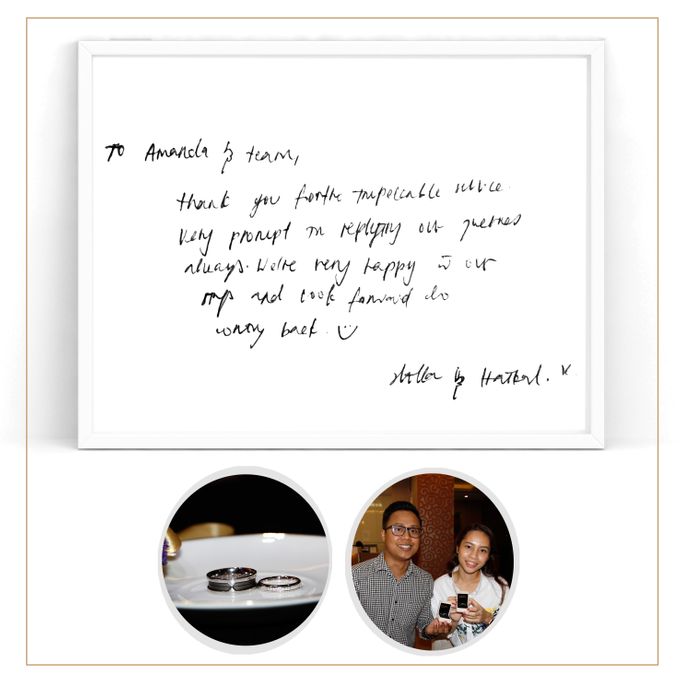 To Amanda & team,
Thank you for the impeccable service.
Very prompt in replying our queries
always. We're very happy w our
rings and look forward to
coming back.
&